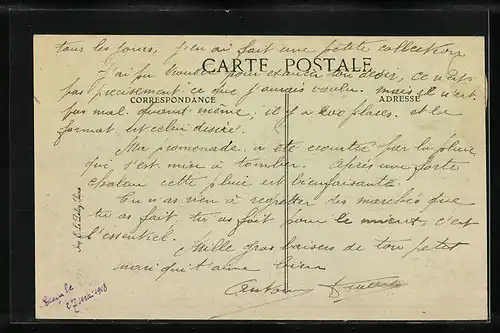 tous les jours, j'en ai fait une petite collection
CARTE POSTALE
J'ai pu trouver pour exaucer ton désir, ce n'est
pas précisément ce que j'aurais voulu mais il n'est
CORRESPONDANCE
ADRESSE
pas mal quand même; il y a 200 places. et le
format est celui désiré.
Ma promenade a été écourtée par la pluie
qui s'est mise à tomber. Après une forte
chaleur cette pluie est bienfaisante.
Tu n'as rien à regretter des marches que
tu as fait, tu as fait pour le mieux, c'est
l'essentiel.
Mille gros baisers de ton petit
mari qui t'aime bien
Imp. E. Le Deley, Paris
27 mai 1918